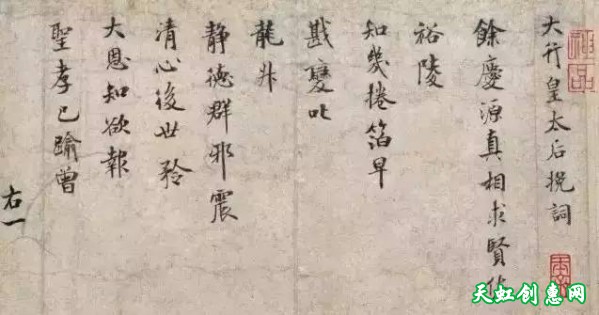 大行皇太后挽詞
餘慶源真相求賢
裕陵
知幾捲箔早
戡變叱
龍升
静德群邪震
清心後世矜
大恩知欲報
聖孝已踰曾
右一
天虹创惠网